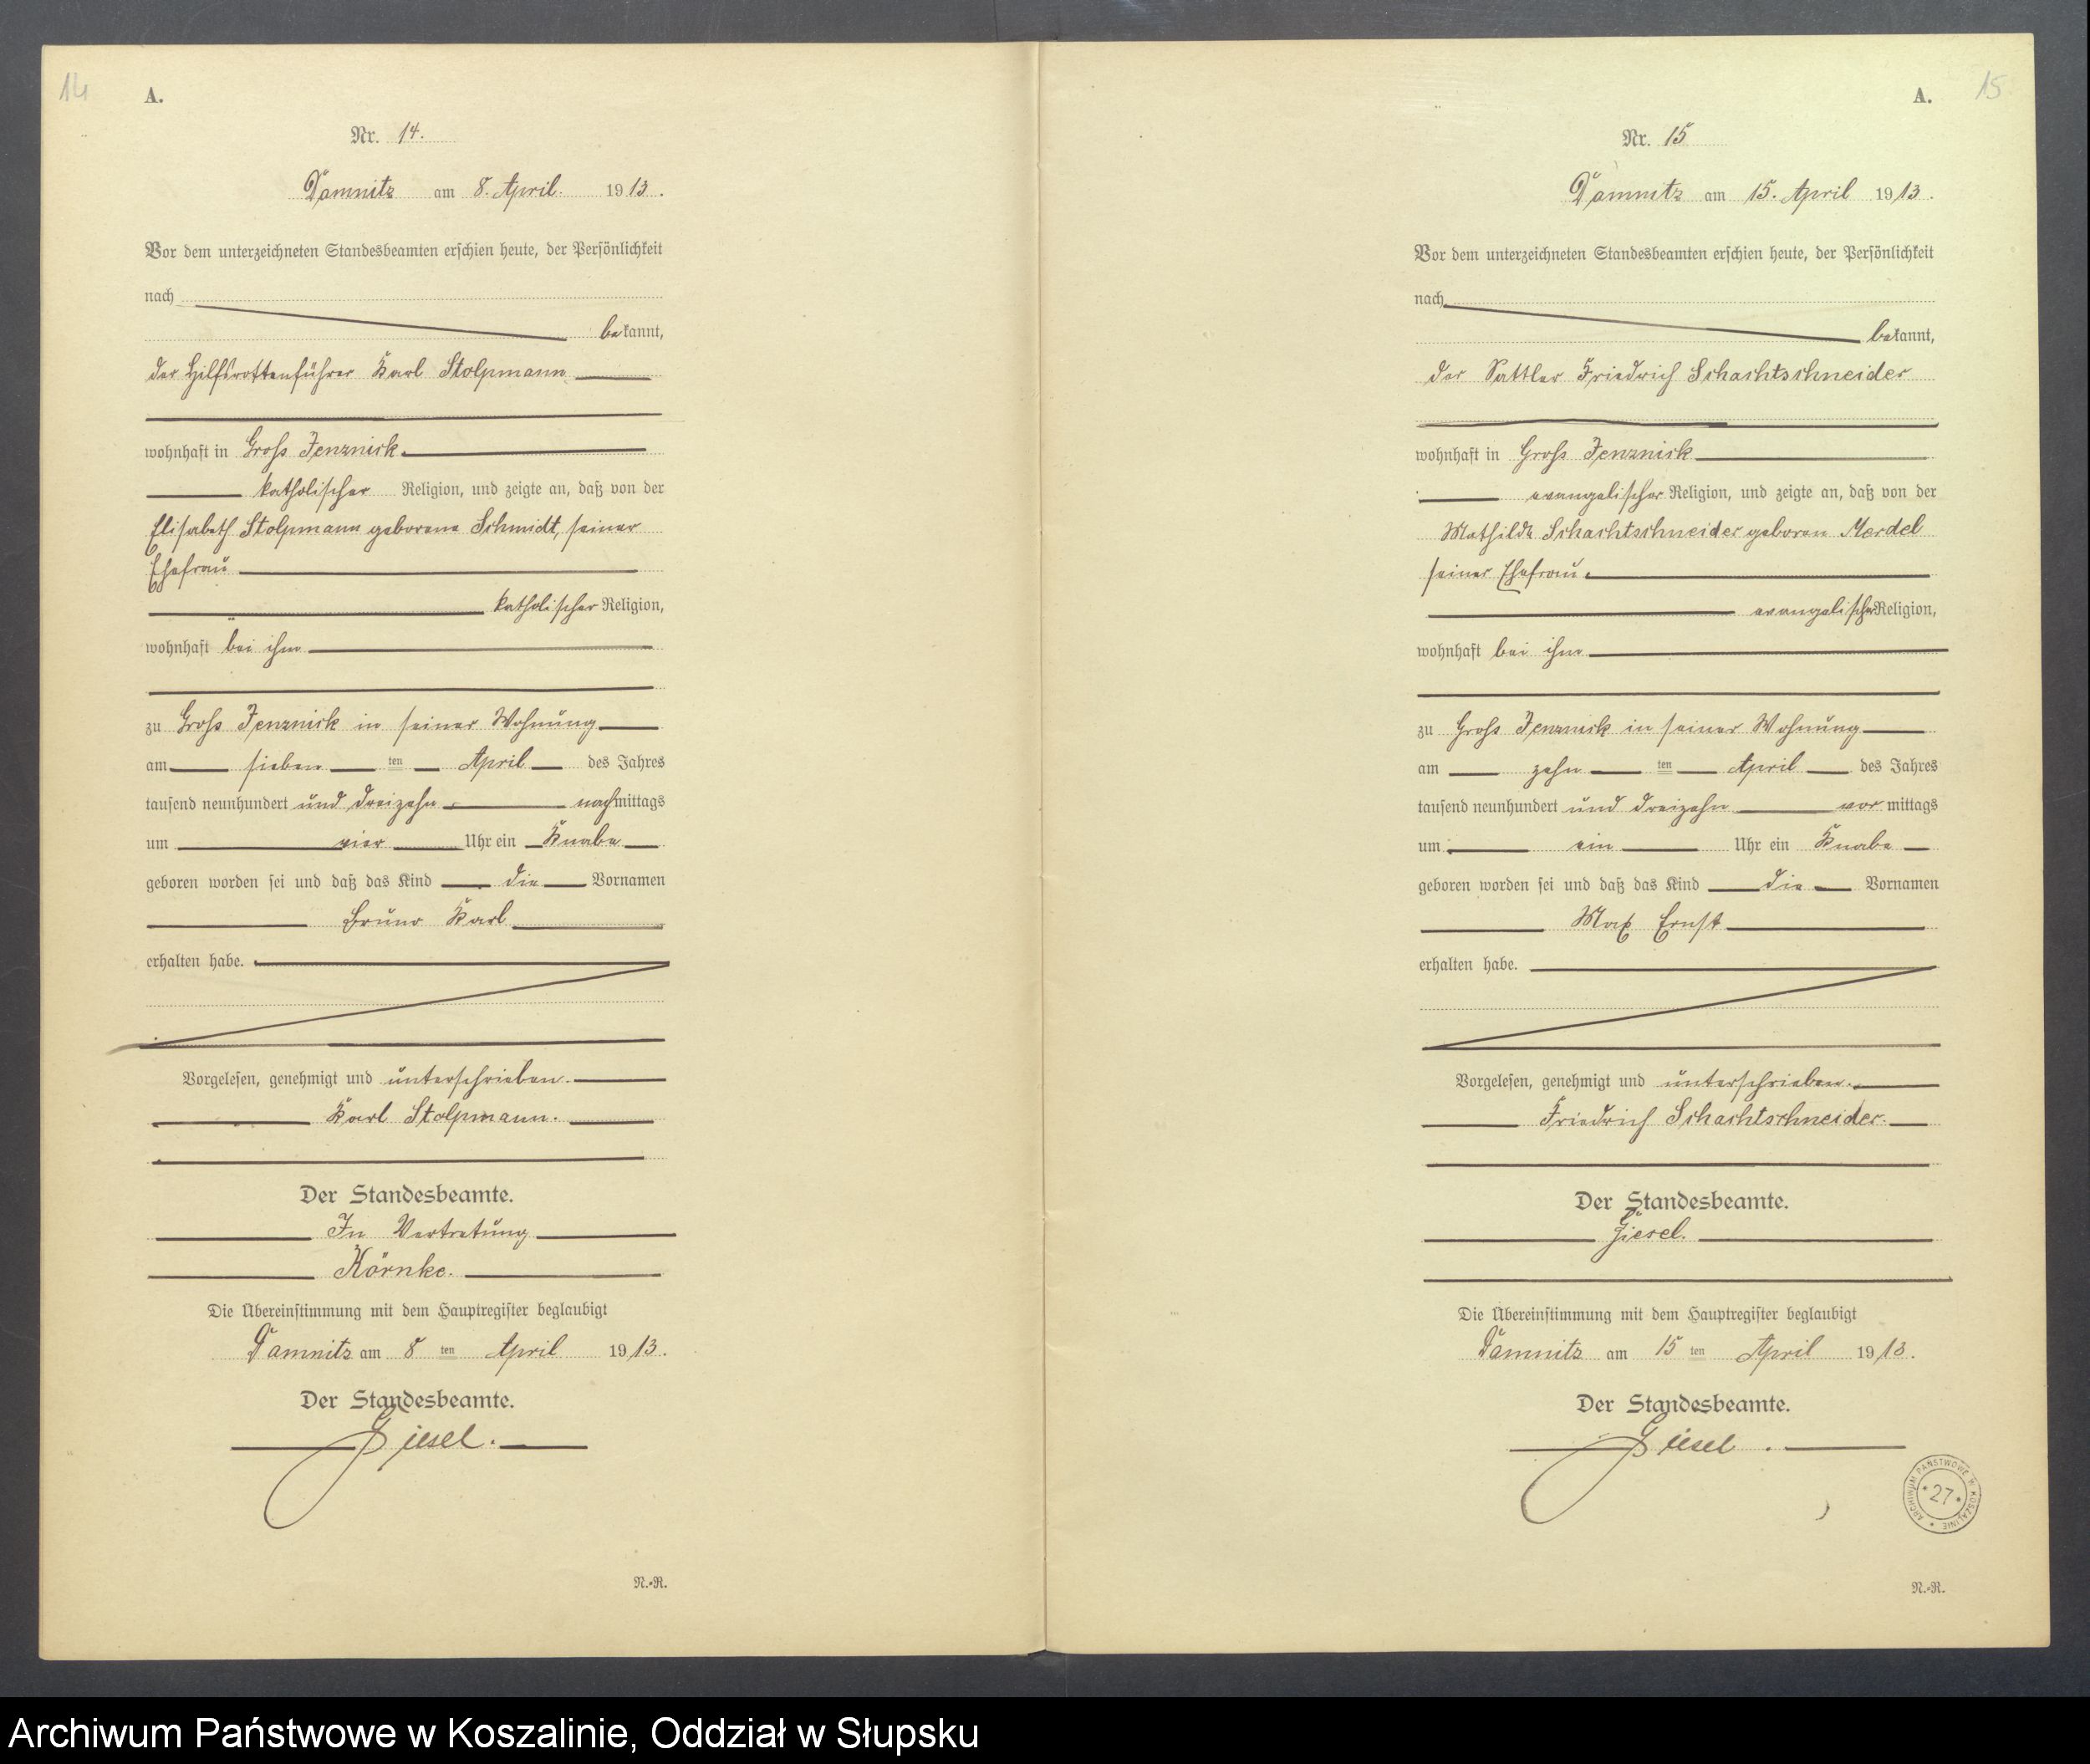 14
A.
Nr. 14.
Damnitz am 8. April. 1913.
Vor dem unterzeichneten Standesbeamten erschien heute, der Persönlichkeit
nach
bekannt,
der Hilfsrottenführer Karl Stolpmann
wohnhaft in Groß Jenznick.
katholischer Religion, und zeigte an, daß von der
Elisabeth Stolpmann geborene Schmidt, seiner
Ehefrau
katholischer Religion,
wohnhaft bei ihm
zu Groß Jenznick in seiner Wohnung
am sieben ten April des Jahres
tausend neunhundert und dreizehn nachmittags
um vier Uhr ein Knabe
geboren worden sei und daß das Kind die Vornamen
Bruno Karl
erhalten habe.
Vorgelesen, genehmigt und unterschrieben.
Karl Stolpmann.
Der Standesbeamte.
In Vertretung
Körnke.
Die Übereinstimmung mit dem Hauptregister beglaubigt
Damnitz am 8 ten April 1913.
Der Standesbeamte.
Giesel.
N.-R.
15
A.
Nr. 15
Damnitz am 15. April 1913.
Vor dem unterzeichneten Standesbeamten erschien heute, der Persönlichkeit
nach
bekannt,
der Sattler Friedrich Schachtschneider
wohnhaft in Groß Jenznick
evangelischer Religion, und zeigte an, daß von der
Mathilde Schachtschneider geboren Merdel
seiner Ehefrau.
evangelischer Religion,
wohnhaft bei ihm
zu Groß Jenznick in seiner Wohnung
am zehn ten April des Jahres
tausend neunhundert und dreizehn vormittags
um ein Uhr ein Knabe
geboren worden sei und daß das Kind die Vornamen
Max Ernst
erhalten habe.
Vorgelesen, genehmigt und unterschrieben.
Friedrich Schachtschneider.
Der Standesbeamte.
Giesel.
Die Übereinstimmung mit dem Hauptregister beglaubigt
Damnitz am 15 ten April 1913.
Der Standesbeamte.
Giesel.
ARCHIWUM PAŃSTWOWE W KOSZALINIE
27
N.-R.
Archiwum Państwowe w Koszalinie, Oddział w Słupsku